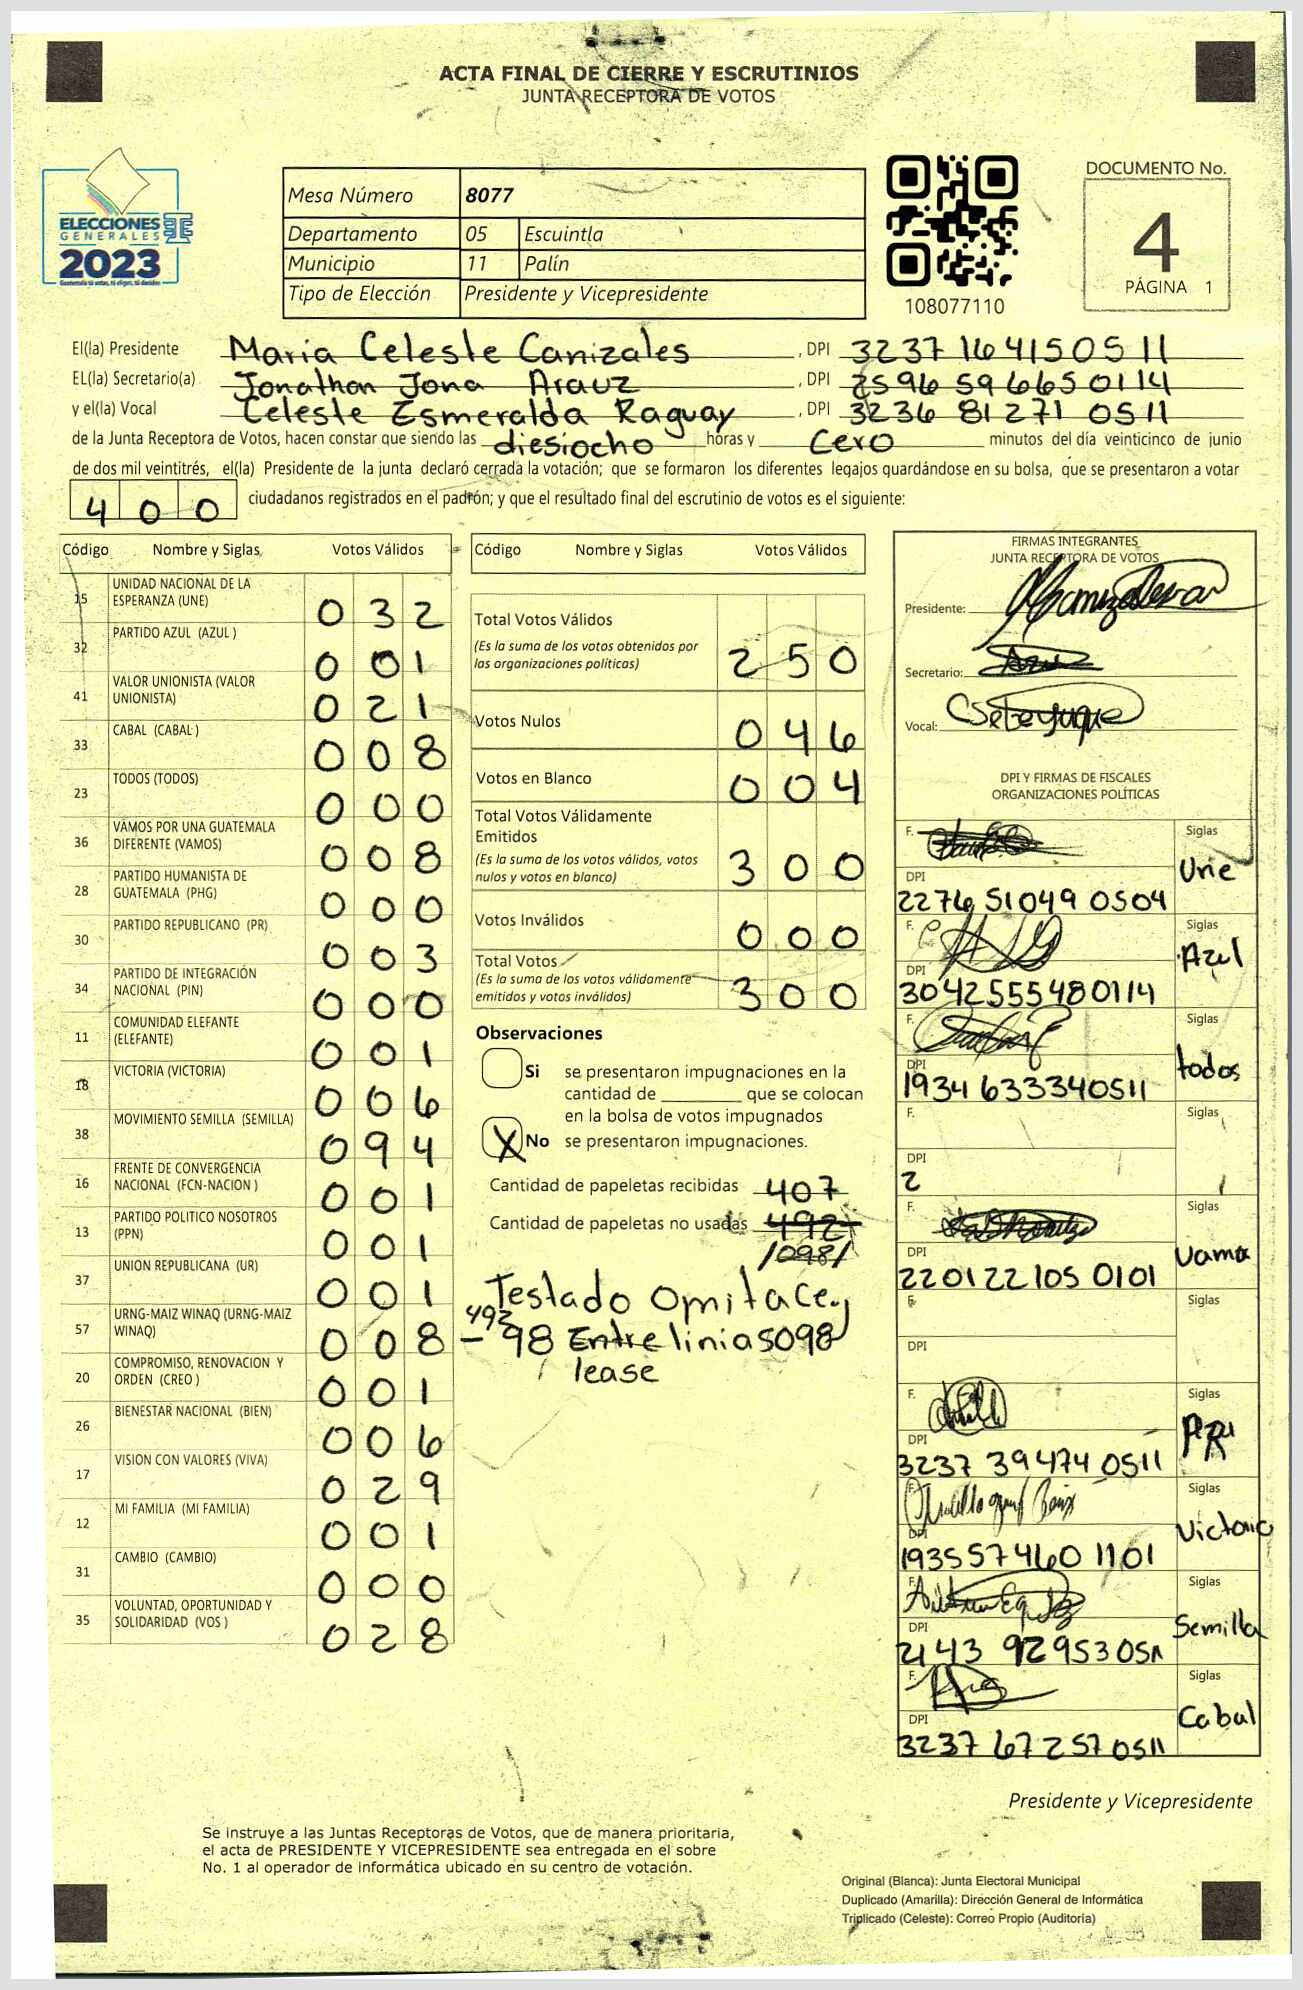 ACTA FINAL DE CIERRE Y ESCRUTINIOS
JUNTA RECEPTORA DE VOTOS
ELECCIONES
GENERALES
2023
Guatemala tú votas, tú eliges, tú decides
Mesa Número 8077
Departamento 05 Escuintla
Municipio 11 Palín
Tipo de Elección Presidente y Vicepresidente
108077110
DOCUMENTO No.
4
PÁGINA 1
El(la) Presidente Maria Celeste Canizales, DPI 3237 16415 0511
EL(la) Secretario(a) Jonathan Jona Arauz, DPI 2596 59665 0114
y el(la) Vocal Celeste Esmeralda Raguay, DPI 3236 81271 0511
de la Junta Receptora de Votos, hacen constar que siendo las diesiocho horas y cero minutos del día veinticinco de junio
de dos mil veintitrés, el(la) Presidente de la junta declaró cerrada la votación; que se formaron los diferentes legajos guardándose en su bolsa, que se presentaron a votar
400 ciudadanos registrados en el padrón; y que el resultado final del escrutinio de votos es el siguiente:
Código Nombre y Siglas Votos Válidos
15 UNIDAD NACIONAL DE LA ESPERANZA (UNE) 032
32 PARTIDO AZUL (AZUL ) 001
41 VALOR UNIONISTA (VALOR UNIONISTA) 021
33 CABAL (CABAL ) 008
23 TODOS (TODOS) 000
36 VAMOS POR UNA GUATEMALA DIFERENTE (VAMOS) 008
28 PARTIDO HUMANISTA DE GUATEMALA (PHG) 000
30 PARTIDO REPUBLICANO (PR) 003
34 PARTIDO DE INTEGRACIÓN NACIONAL (PIN) 000
11 COMUNIDAD ELEFANTE (ELEFANTE) 001
18 VICTORIA (VICTORIA) 006
38 MOVIMIENTO SEMILLA (SEMILLA) 094
16 FRENTE DE CONVERGENCIA NACIONAL (FCN-NACION ) 001
13 PARTIDO POLITICO NOSOTROS (PPN) 001
37 UNION REPUBLICANA (UR) 001
57 URNG-MAIZ WINAQ (URNG-MAIZ WINAQ) 008
20 COMPROMISO, RENOVACION Y ORDEN (CREO ) 001
26 BIENESTAR NACIONAL (BIEN) 006
17 VISION CON VALORES (VIVA) 029
12 MI FAMILIA (MI FAMILIA) 001
31 CAMBIO (CAMBIO) 000
35 VOLUNTAD, OPORTUNIDAD Y SOLIDARIDAD (VOS ) 028
Código Nombre y Siglas Votos Válidos
Total Votos Válidos
(Es la suma de los votos obtenidos por las organizaciones políticas) 250
Votos Nulos 046
Votos en Blanco 004
Total Votos Válidamente Emitidos
(Es la suma de los votos válidos, votos nulos y votos en blanco) 300
Votos Inválidos 000
Total Votos
(Es la suma de los votos válidamente emitidos y votos inválidos) 300
Observaciones
Si se presentaron impugnaciones en la
cantidad de ________ que se colocan
en la bolsa de votos impugnados
X No se presentaron impugnaciones.
Cantidad de papeletas recibidas 407
Cantidad de papeletas no usadas 492
/098/
Testado Omitace
492
- 98 Entre linias 098
lease
FIRMAS INTEGRANTES
JUNTA RECEPTORA DE VOTOS
Presidente:
Secretario:
Vocal:
DPI Y FIRMAS DE FISCALES
ORGANIZACIONES POLÍTICAS
F. Siglas Une
DPI 2276 51049 0504
F. Siglas Azul
DPI 3042555480114
F. Siglas todos
DPI 1934 633340511
F. Siglas
DPI 2
F. Siglas vama
DPI 220122105 0101
F. Siglas
DPI
F. Siglas
DPI 3237 39474 0511
F. Siglas Victoria
DPI 1935574601101
F. Siglas Semilla
DPI 2143 92953 0511
F. Siglas Cabal
DPI 3237 67257 0511
Presidente y Vicepresidente
Se instruye a las Juntas Receptoras de Votos, que de manera prioritaria,
el acta de PRESIDENTE Y VICEPRESIDENTE sea entregada en el sobre
No. 1 al operador de informática ubicado en su centro de votación.
Original (Blanca): Junta Electoral Municipal
Duplicado (Amarilla): Dirección General de Informática
Triplicado (Celeste): Correo Propio (Auditoría)